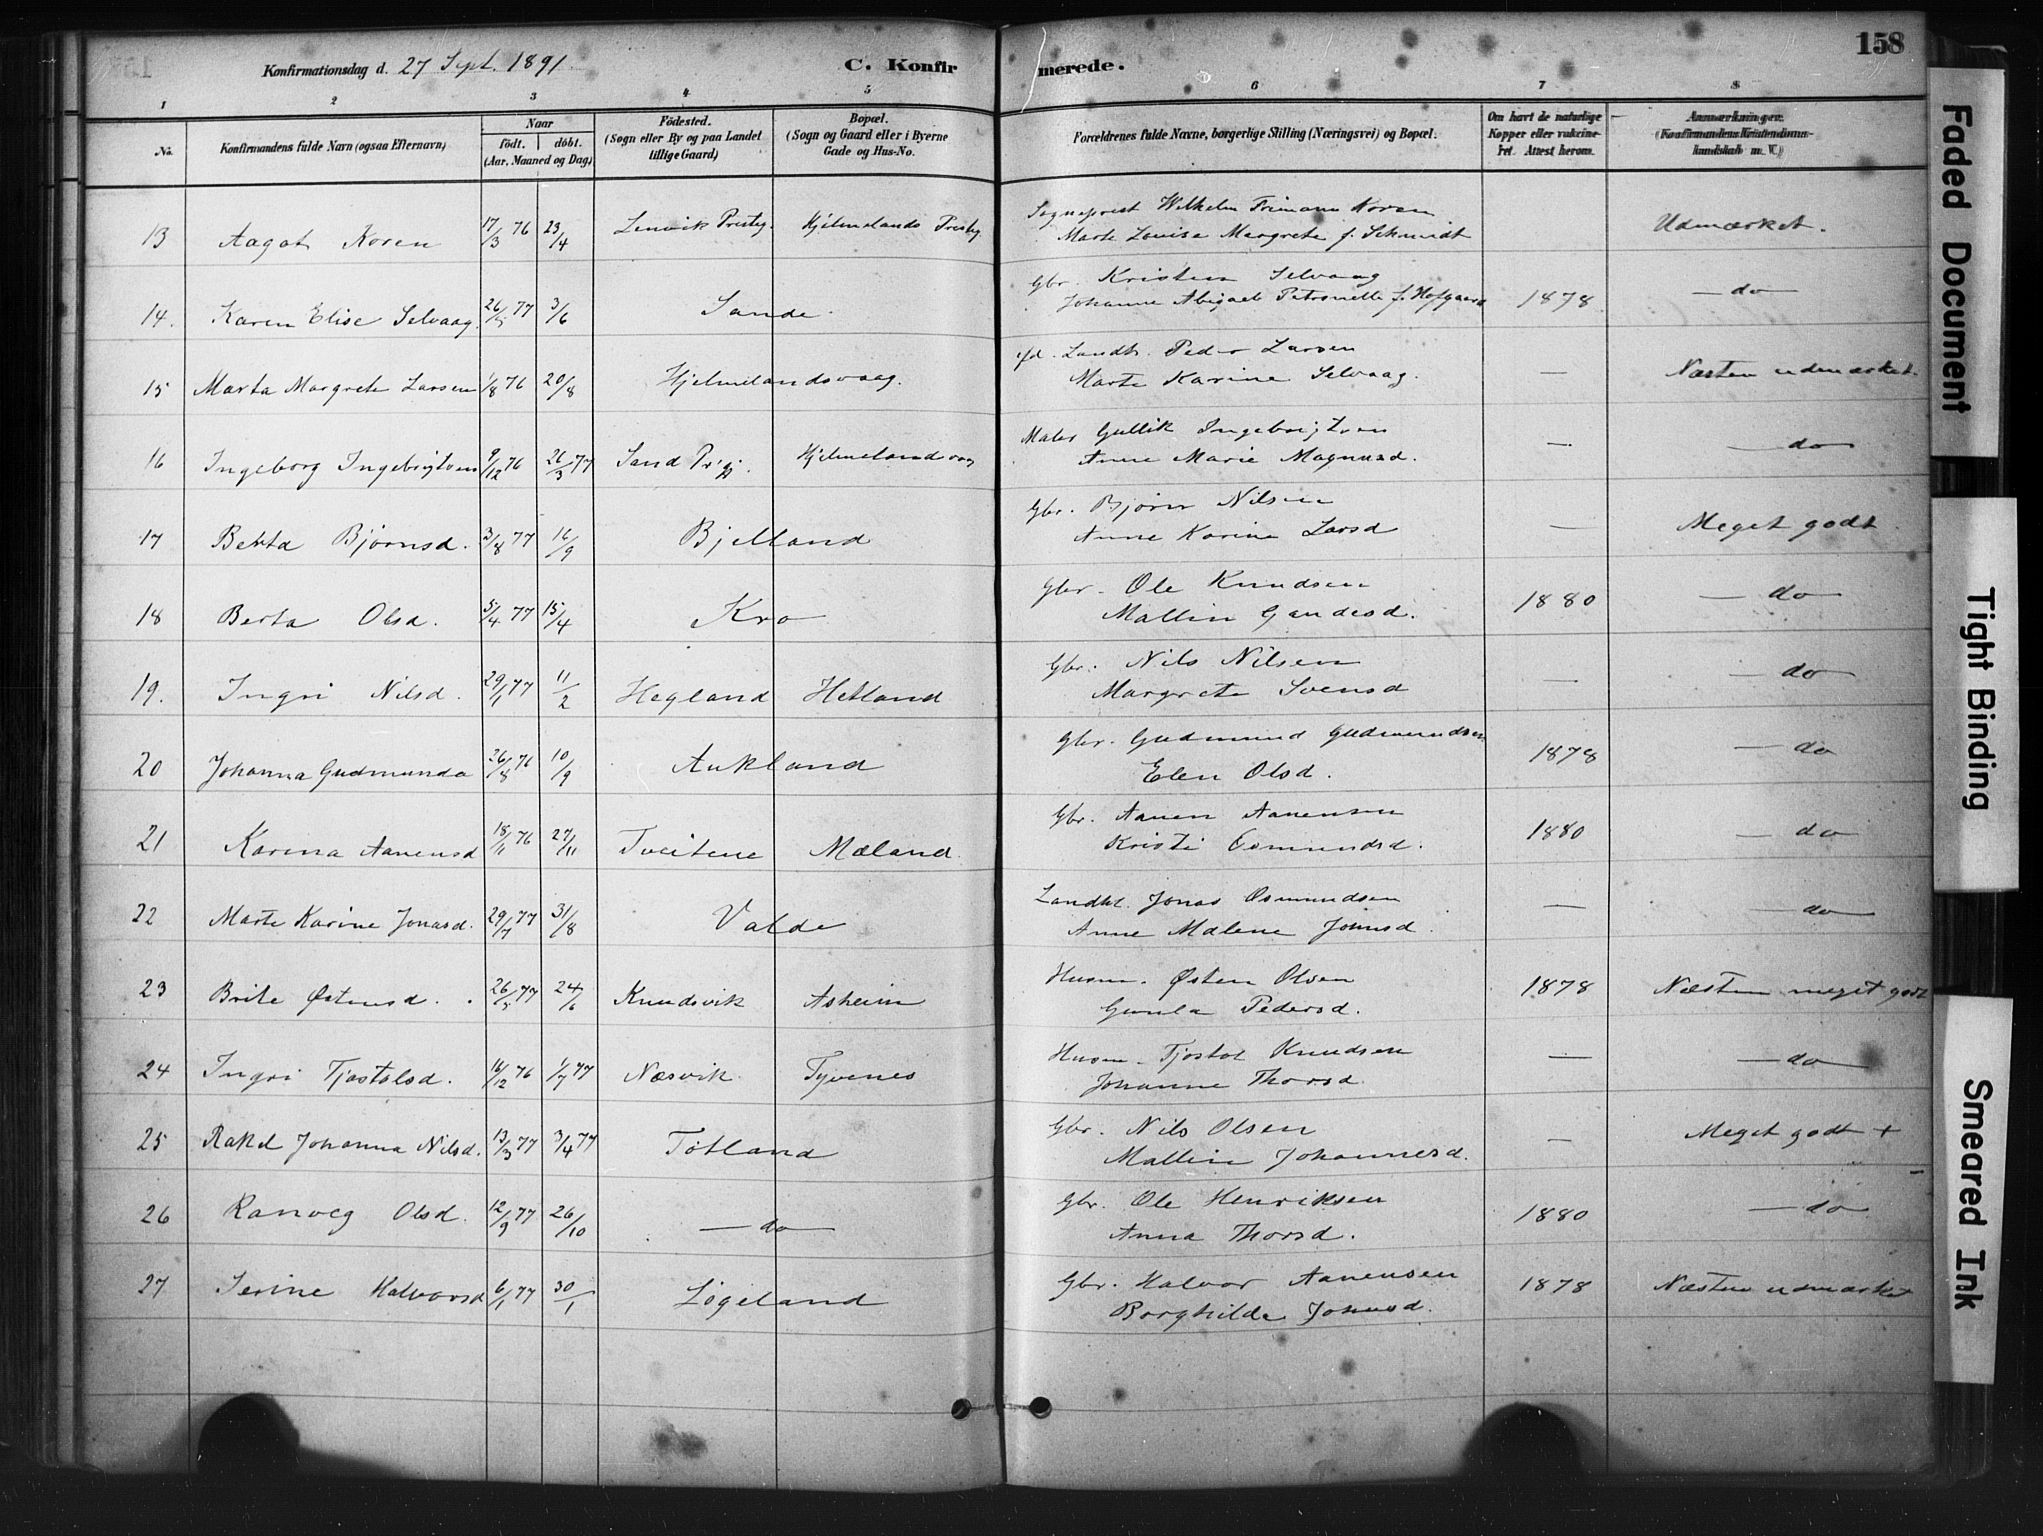 Konfirmationsdag d. 27 Sept. 1891. C. Konfir merede. 158
1 2 3 4 5 6 7 8
No.
Konfirmandens fulde Navn (ogsaa Efternavn)
Naar
født. døbt.
(Aar, Maaned og Dag)
Fødested.
(Sogn eller By og paa Landet
tillige Gaard)
Bopæl.
(Sogn og Gaard eller i Byerne
Gade og Hus-No.
Forældrenes fulde Navne, borgerlige Stilling (Næringsvei) og Bopæl.
Om havt de naturlige
Kopper eller vakcine-
ret. Attest herom.
Anmærkninger.
(Konfirmandens Kristendoms-
kundskab m. V.)
13 Aagot Koren 17/3 76 23/4 Lenvik Prestg. Hjelmelands Prestg
Sogneprest Wilhelm Frimann Koren
Marte Lovise Margrete f. Schmidt
Udmærket.
14. Karen Elise Selvaag 26/5 77 3/6 Sande.
Gbr. Kristen Selvaag
Johanne Abigael Petronelle f. Hofgaard 1878
— do —
15 Marta Margrete Larsen 1/8 76 20/8 Hjelmelandsvaag.
Landh. Peder Larsen
Marte Karine Selvaag. —
Næsten udmærket.
16 Ingeborg Ingebrigtsen 9/12 76 26/3 77 Sand Prgj. Hjelmelandsvag
Maler Gullik Ingebrigtsen
Anne Marie Magnusd. —
— do —
17 Berta Bjørnsd. 2/8 77 16/9 Bjelland
Gbr. Bjørn Nilsen
Anne Karine Larsd —
Meget godt
18 Berta Olsd. 5/4 77 15/4 Kro
Gbr. Ole Knudsen
Mallin Gaudesd. 1880
— do —
19. Ingri Nilsd. 29/1 77 11/2 Hegland Hetland
Gbr. Nils Nilsen
Margrete Svensd —
— do
20 Johanna Gudmundsd 26/8 76 10/9 Aukland
Gbr. Gudmund Gudmundsen
Elen Olsd. 1878
— do
21 Karina Aanensd 18/11 76 27/11 Tveitene Mæland.
Gbr. Aanen Aanensen
Kristi Osmundsd. 1880
— do
22 Marte Karine Jonasd. 29/7 77 31/8 Valde
Landhl. Jonas Osmundsen
Anne Malene Johnsd. —
— do —
23 Brite Østensd. 26/5 77 24/6 Knudsvik Asheim
Husm. Østen Olsen
Gunla Pedersd. 1878
Næsten meget godt
24 Ingri Tjostolsd. 16/12 76 1/7 77 Næsvik Tyvenes
Husm. Tjostol Knudsen
Johanne Thorsd —
— do —
25 Rakel Johanna Nilsd. 13/3 77 3/4 77 Tøtland
Gbr. Nils Olsen
Mallin Johannesd. —
Meget godt +
26 Ranveg Olsd. 12/9 77 26/10 — do —
Gbr. Ole Henriksen
Anna Thorsd. 1880
— do
27 Serine Halvorsd 6/1 77 30/1 Løgeland
Gbr. Halvor Aanensen
Borghilde Johnsd. 1878
Næsten udmærket
Faded Document
Tight Binding
Smeared Ink